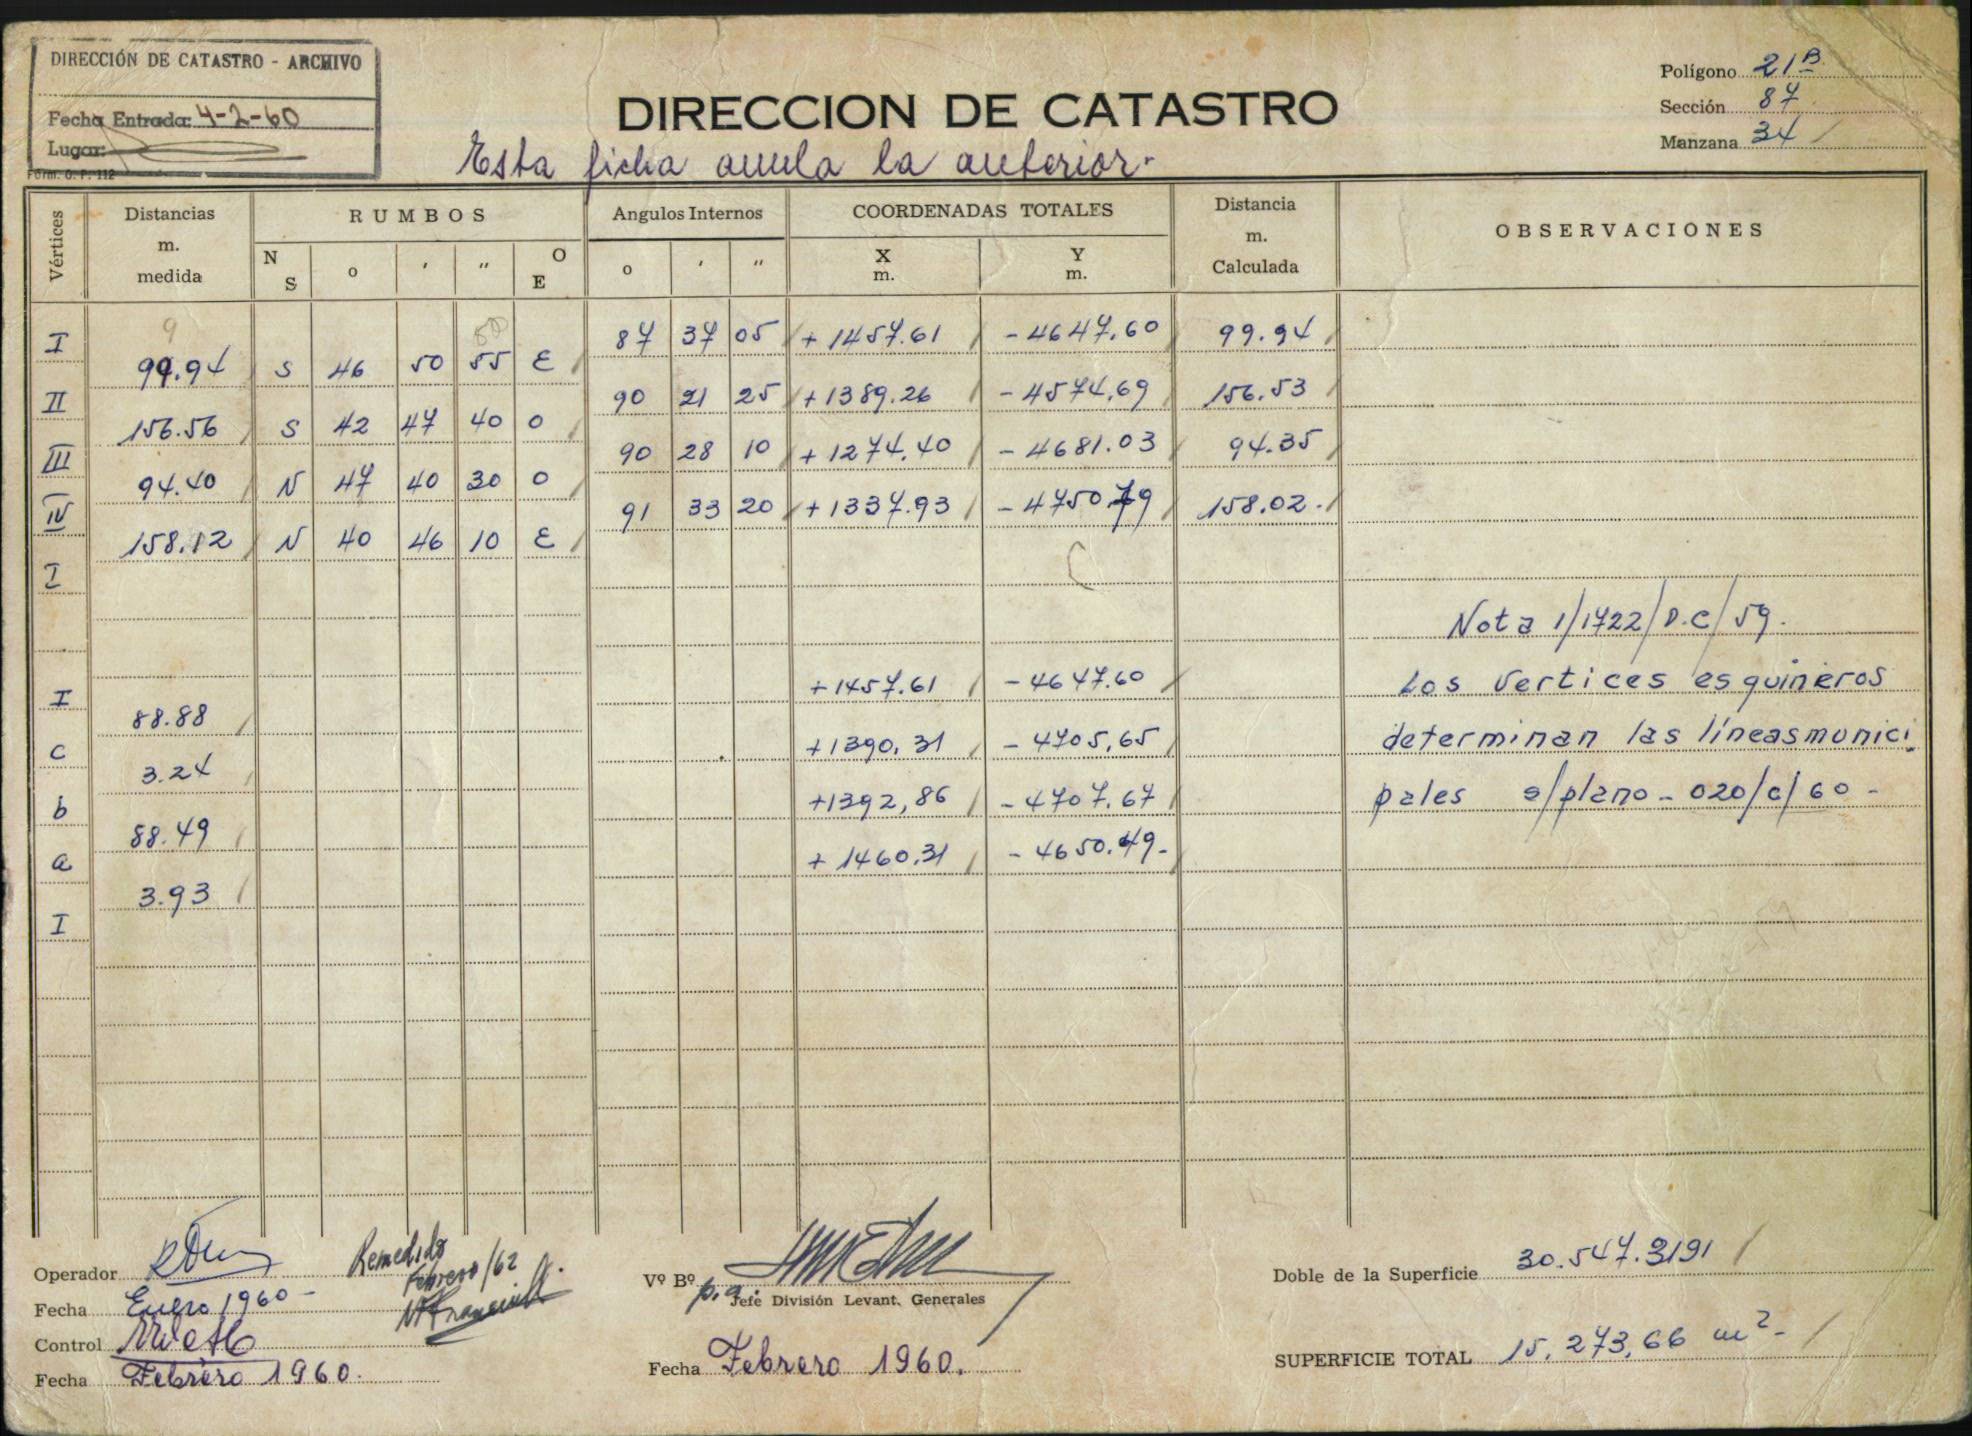 DIRECCIÓN DE CATASTRO - ARCHIVO
Fecha Entrada: 4-2-60
Lugar:
Form. O. P. 112
DIRECCION DE CATASTRO
Esta ficha anula la anterior.-
Polígono 21 B
Sección 87
Manzana 34
Vértices Distancias m. medida RUMBOS Angulos Internos COORDENADAS TOTALES Distancia m. Calculada OBSERVACIONES
N S o ' " O E o ' " X m. Y m.
9 50
I 87 37 05 +1457.61 -4647.60 99.94
99.94 S 46 50 55 E
II 90 21 25 +1389.26 -4574,69 156.53
156.56 S 42 47 40 O
III 90 28 10 +1274.40 -4681.03 94.35
94.40 N 47 40 30 O
IV 91 33 20 +1337.93 -4750.79 158.02.
158.12 N 40 46 10 E
I
Nota 1/1722/D.C/59.
I +1457.61 -4647.60 Los vertices esquineros
88.88
c +1390,31 -4705,65 determinan las líneasmunici
3.24
b +1392,86 -4707.67 pales s/plano - 020/c/60 -
88.49
a +1460,31 -4650.49-
3.93
I
Operador
Fecha Enero 1960-
Control
Fecha Febrero 1960.
Remedido
Febrero/62
Vº Bº p.a.
Jefe División Levant. Generales
Fecha Febrero 1960.
Doble de la Superficie 30.547.3191
SUPERFICIE TOTAL 15.273,66 m²-